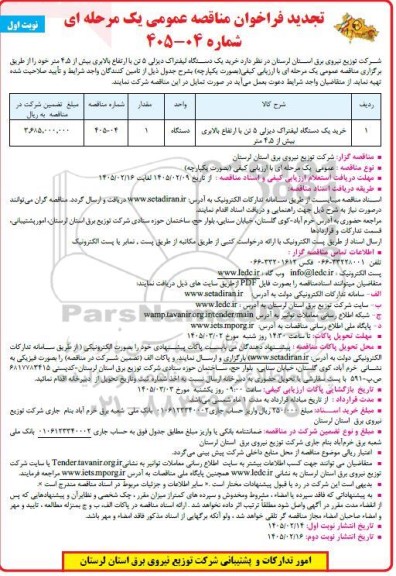 نوبت اول
تجدید فراخوان مناقصه عمومی یک مرحله ای
شماره ۰۴-۴۰۵
شرکت توزیع نیروی برق استان لرستان در نظر دارد خرید یک دستگاه لیفتراک دیزلی ۵ تن با ارتفاع بالابری بیش از ۴.۵ متر خود را از طریق
برگزاری مناقصه عمومی یک مرحله ای با ارزیابی کیفی(بصورت یکپارچه) بشرح جدول ذیل از تامین کنندگان واجد شرایط و تأیید صلاحیت شده
تهیه نماید. از متقاضیان واجد شرایط دعوت بعمل می‌آید در صورت تمایل در این مناقصه شرکت نمایند.
ردیف شرح کالا واحد مقدار شماره مناقصه مبلغ تضمین شرکت در مناقصه به ریال
۱ خرید یک دستگاه لیفتراک دیزلی ۵ تن با ارتفاع بالابری بیش از ۴.۵ متر دستگاه ۱ ۴۰۵-۰۴ ۳,۶۸۵,۰۰۰,۰۰۰
مناقصه گزار: شرکت توزیع نیروی برق استان لرستان
نوع مناقصه : عمومی یک مرحله ای با ارزیابی کیفی (بصورت یکپارچه)
مهلت دریافت استعلام ارزیابی کیفی و اسناد مناقصه : از تاریخ ۱۴۰۵/۰۲/۰۹ لغایت ۱۴۰۵/۰۲/۱۶
طریقه دریافت اسناد مناقصه:
اسناد مناقصه میبایست از طریق سامانه تدارکات الکترونیک به آدرس: www.setadiran.ir دریافت و ارسال گردد. مناقصه گران می‌توانند
درصورت نیاز به شرح ذیل جهت راهنمایی و دریافت اسناد اقدام نمایند.
مراجعه حضوری به آدرس خرم آباد-کوی گلستان، خیابان سنایی، بلوار حج، ساختمان حوزه ستادی شرکت توزیع برق استان لرستان، امورپشتیبانی،
قسمت تدارکات و قراردادها
ارسال اسناد از طریق پست الکترونیک با ارائه درخواست کتبی از طریق مکاتبه از طریق پست ، نمابر یا پست الکترونیک
اطلاعات تماس مناقصه گزار :
تلفن ۰۶۶-۳۳۲۲۸۰۰۱ فکس ۰۶۶-۳۳۲۰۱۶۱۲
پست الکترونیک : info@ledc.ir وب گاه : www.ledc.ir
متقاضیان میتوانند اسنادمناقصه را بصورت فایل PDF ازطریق سایت های ذیل دریافت نمایند:
الف- سامانه تدارکات الکترونیکی دولت به آدرس: www.setadiran.ir
ب- سایت شرکت توزیع برق استان لرستان به آدرس : www.ledc.ir
ج- شبکه اطلاع رسانی معاملات توانیر به آدرس wamp.tavanir.org.ir/tender/main
د- پایگاه ملی اطلاع رسانی مناقصات به آدرس: www.iets.mporg.ir
مهلت تحویل پاکات: تا ساعت ۱۴:۳۰ روز شنبه مورخ ۱۴۰۵/۰۳/۰۲
محل تحویل پاکات مناقصه : پیشنهاد دهندگان می بایست پاکات پیشنهادی خود را بصورت الکترونیکی (از طریق سامانه تدارکات
الکترونیکی دولت به آدرس www.setadiran.ir) بارگزاری و ارسال نمایند. و پاکات الف (تضمین شرکت در مناقصه) را بصورت فیزیکی به
نشانی خرم آباد، کوی گلستان، خیابان سنایی، بلوار حج، ساختمان حوزه ستادی شرکت توزیع برق استان لرستان-کدپستی ۶۸۱۷۷۸۳۴۱۵
ص.پ۵۹۱- با پست سفارشی یا تحویل حضوری به دبیرخانه ارسال نسبت به اخذ شماره ثبت و تاریخ تحویل از دبیرخانه اقدام نمایند.
تاریخ بازگشایی پاکات ارزیابی کیفی: ساعت ۰۹:۰۰ روز یکشنبه مورخ ۱۴۰۵/۰۳/۰۳
مدت قرارداد : از تاریخ مبادله قرارداد به مدت ۱ ماه شمسی می‌باشد.
مبلغ خرید اسناد: مبلغ ۲۵۰,۰۰۰ ریال واریز حساب جاری ۰۱۰۶۱۲۳۳۴۰۰۰۲ بانک ملی شعبه برق خرم آباد بنام جاری شرکت توزیع نیروی
برق استان لرستان
مبلغ و نوع تضمین شرکت در مناقصه: ضمانتنامه بانکی یا واریز مبلغ مطابق جدول فوق به حساب جاری ۰۱۰۶۱۲۳۳۴۰۰۰۲ بانک ملی
شعبه برق خرم‌آباد بنام جاری شرکت توزیع نیروی برق استان لرستان
اعتبار ریالی موضوع مناقصه از محل منابع داخلی شرکت پیش بینی می‌گردد.
متقاضیان می توانند جهت کسب اطلاعات بیشتر به سایت اطلاع رسانی معاملات توانیر به نشانی Tender.tavanir.org.ir یا سایت شرکت
توزیع نیروی برق استان لرستان به نشانی www.ledc.ir همچنین پایگاه ملی مناقصات به آدرس www.iets.mporg.ir مراجعه فرمایند.
بدیهی است این شرکت در رد یا قبول پیشنهادات مختار است .« سایر اطلاعات و جزئیات مربوط در اسناد مناقصه مندرج است ».
به پیشنهاداتی که فاقد سپرده یا امضاء ، مشروط ومخدوش و سپرده های کمتراز میزان مقرر ، چک شخصی و نظایرآن و پیشنهادهایی که پس
از انقضا مدت مقرر در آگهی واصل شود مطلقاً ترتیب اثر داده نخواهد شد. ارائه اسناد مناقصه در پاکات الف، ب و ج بمنزله مطالعه ، تایید و مهر
و امضاء صاحبان امضاء مجاز مناقصه گر تلقی خواهد شد ، ولو آنکه برگهایی از اسناد مذکور فاقد امضاء و مهر باشد.
تاریخ انتشار نوبت اول: ۱۴۰۵/۰۲/۱۴
تاریخ انتشار نوبت دوم: ۱۴۰۵/۰۲/۱۶
امور تدارکات و پشتیبانی شرکت توزیع نیروی برق استان لرستان